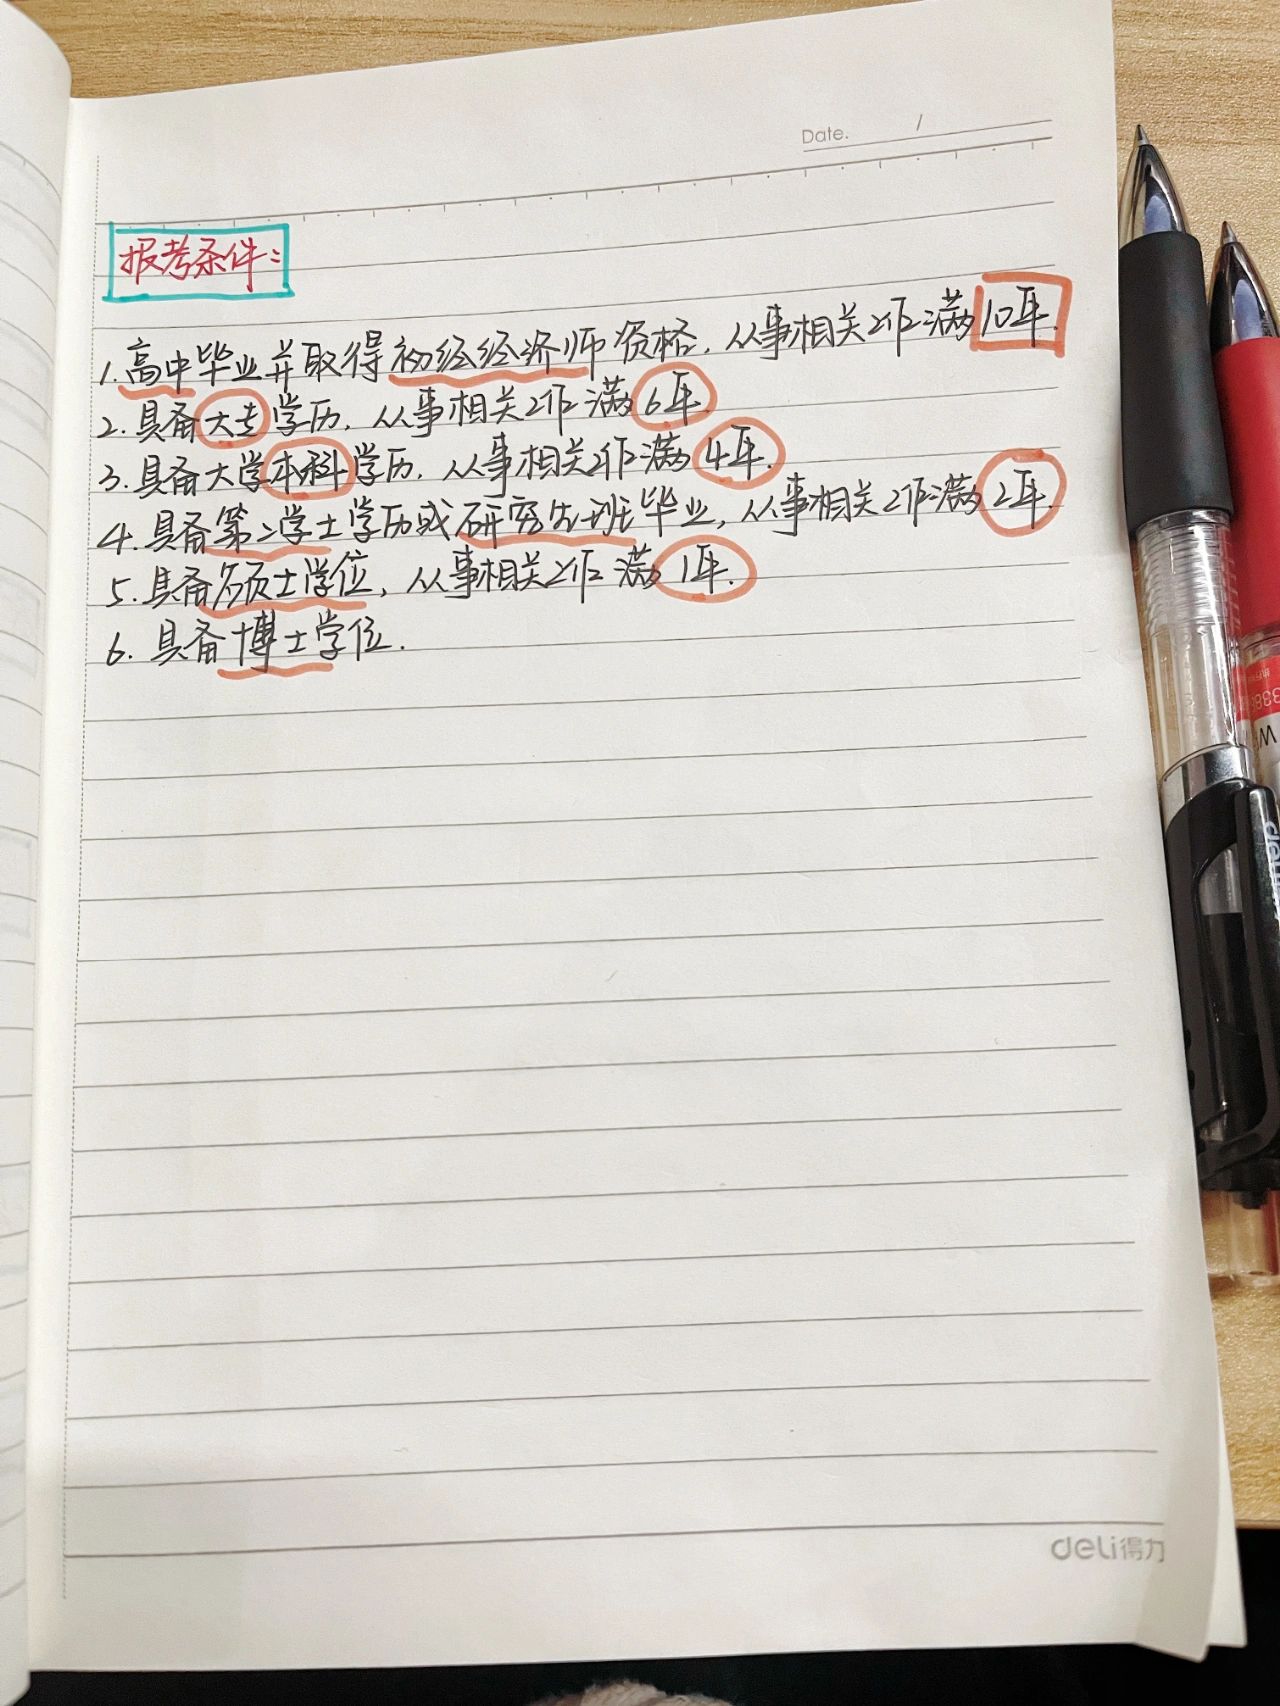 Date. /
报考条件:
1.高中毕业并取得初经经济师资格,从事相关工作满10年.
2.具备大专学历,从事相关工作满6年.
3.具备大学本科学历,从事相关工作满4年.
4.具备第二学士学历或研究生班毕业,从事相关工作满2年.
5.具备硕士学位,从事相关工作满1年.
6.具备博士学位.
deli得力